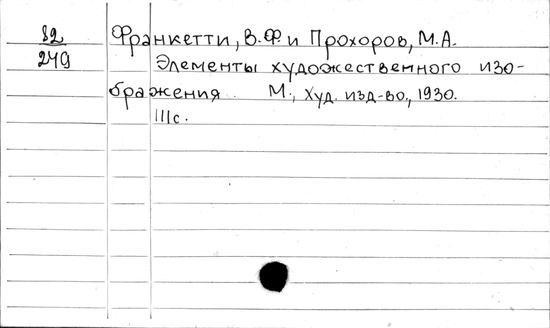 82
249
Франкетти, В.Ф. и Прохоров, М.А.
Элементы художественного изо-
бражения М., Худ. изд-во, 1930.
111с.